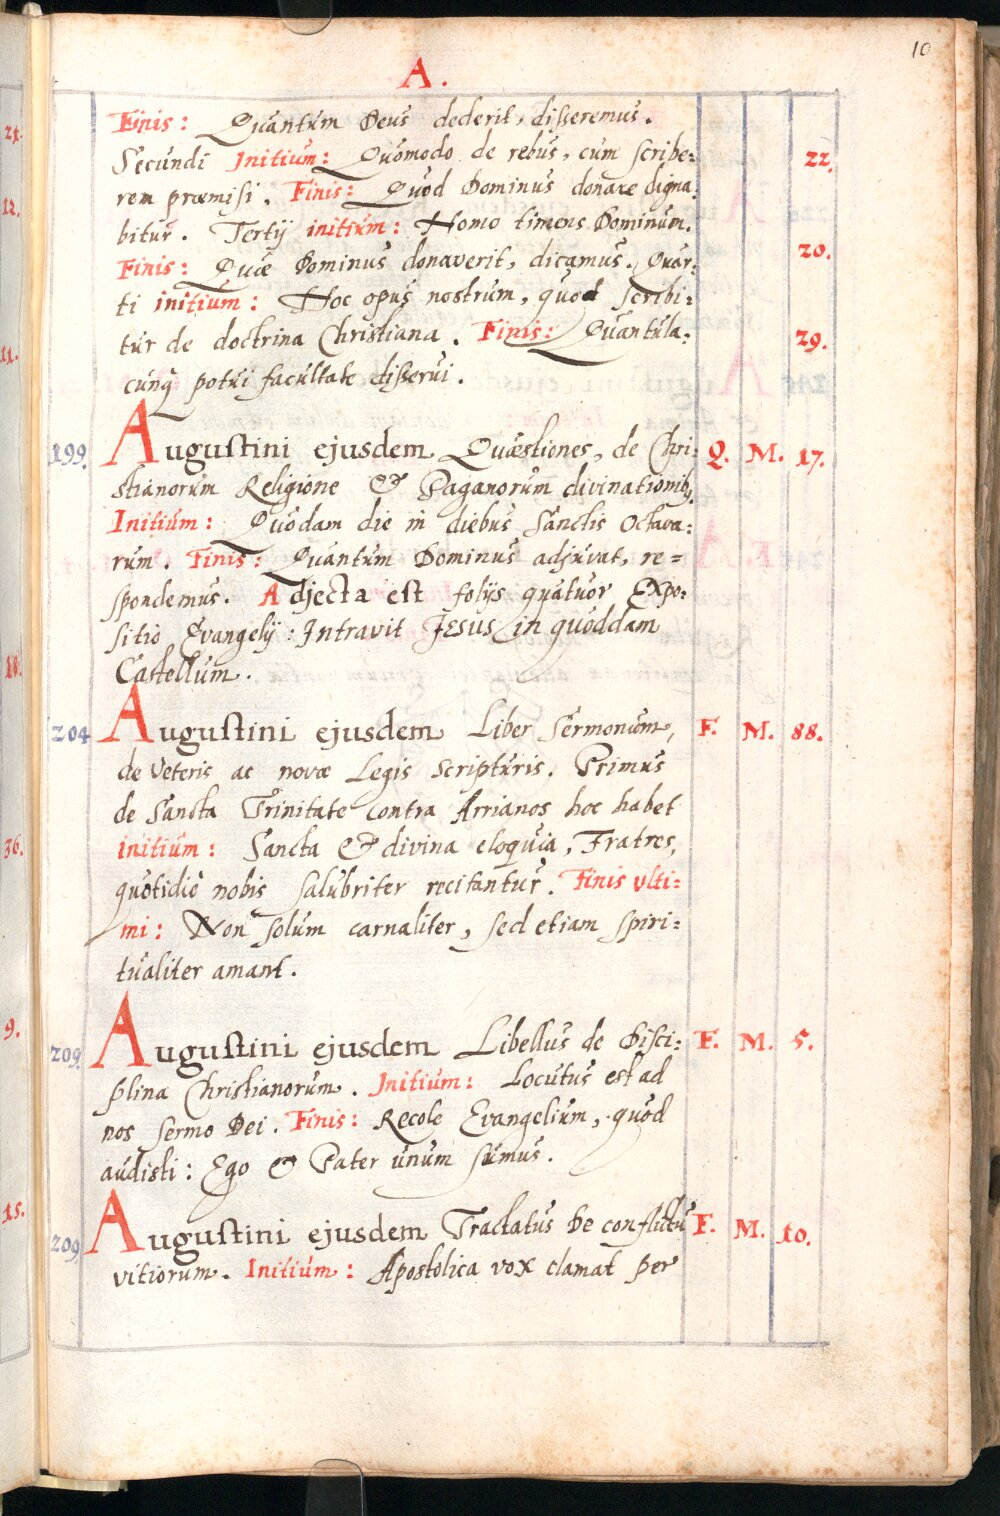 10
A.
Finis: Quantum Deus dederit, disseremus.
Secundi Initium: Quomodo de rebus, cum scribe= 22.
rem præmisi. Finis: Quod Dominus donare digna
bitur. Tertij initium: Homo timens Dominum.
Finis: Quæ Dominus donaverit, dicamus. Quar= 20.
ti initium: Hoc opus nostrum, quod scribi=
tur de doctrina Christiana. Finis: Quantula= 29.
cunq potui facultate disserui.
199. Augustini ejusdem Quæstiones, de Chri= Q. M. 17.
stianorum Religione & Paganorum divinationib9
Initium: Quodam die in diebus Sanctis Octava=
rum. Finis: Quantum Dominus adjuvat, re=
spondemus. Adjecta est folijs quatuor Expo=
sitio Evangelij: Intravit JESUS in quoddam
Castellum.
204 Augustini ejusdem Liber Sermonum, F. M. 88.
de Veteris ac novæ Legis Scripturis. Primus
de Sancta Trinitate contra Arrianos hoc habet
initium: Sancta & divina eloquia, Fratres,
quotidie nobis salubriter recitantur. Finis ulti=
mi: Non solum carnaliter, sed etiam spiri=
tualiter amant.
209. Augustini ejusdem Libellus de Disci= F. M. 5.
plina Christianorum. Initium: Locutus est ad
nos sermo Dei. Finis: Recole Evangelium, quod
audisti: Ego & Pater unum sumus.
209 Augustini ejusdem Tractatus De conflictu F. M. 10.
vitiorum. Initium: Apostolica vox clamat per
21.
12.
11.
18.
36.
9.
15.